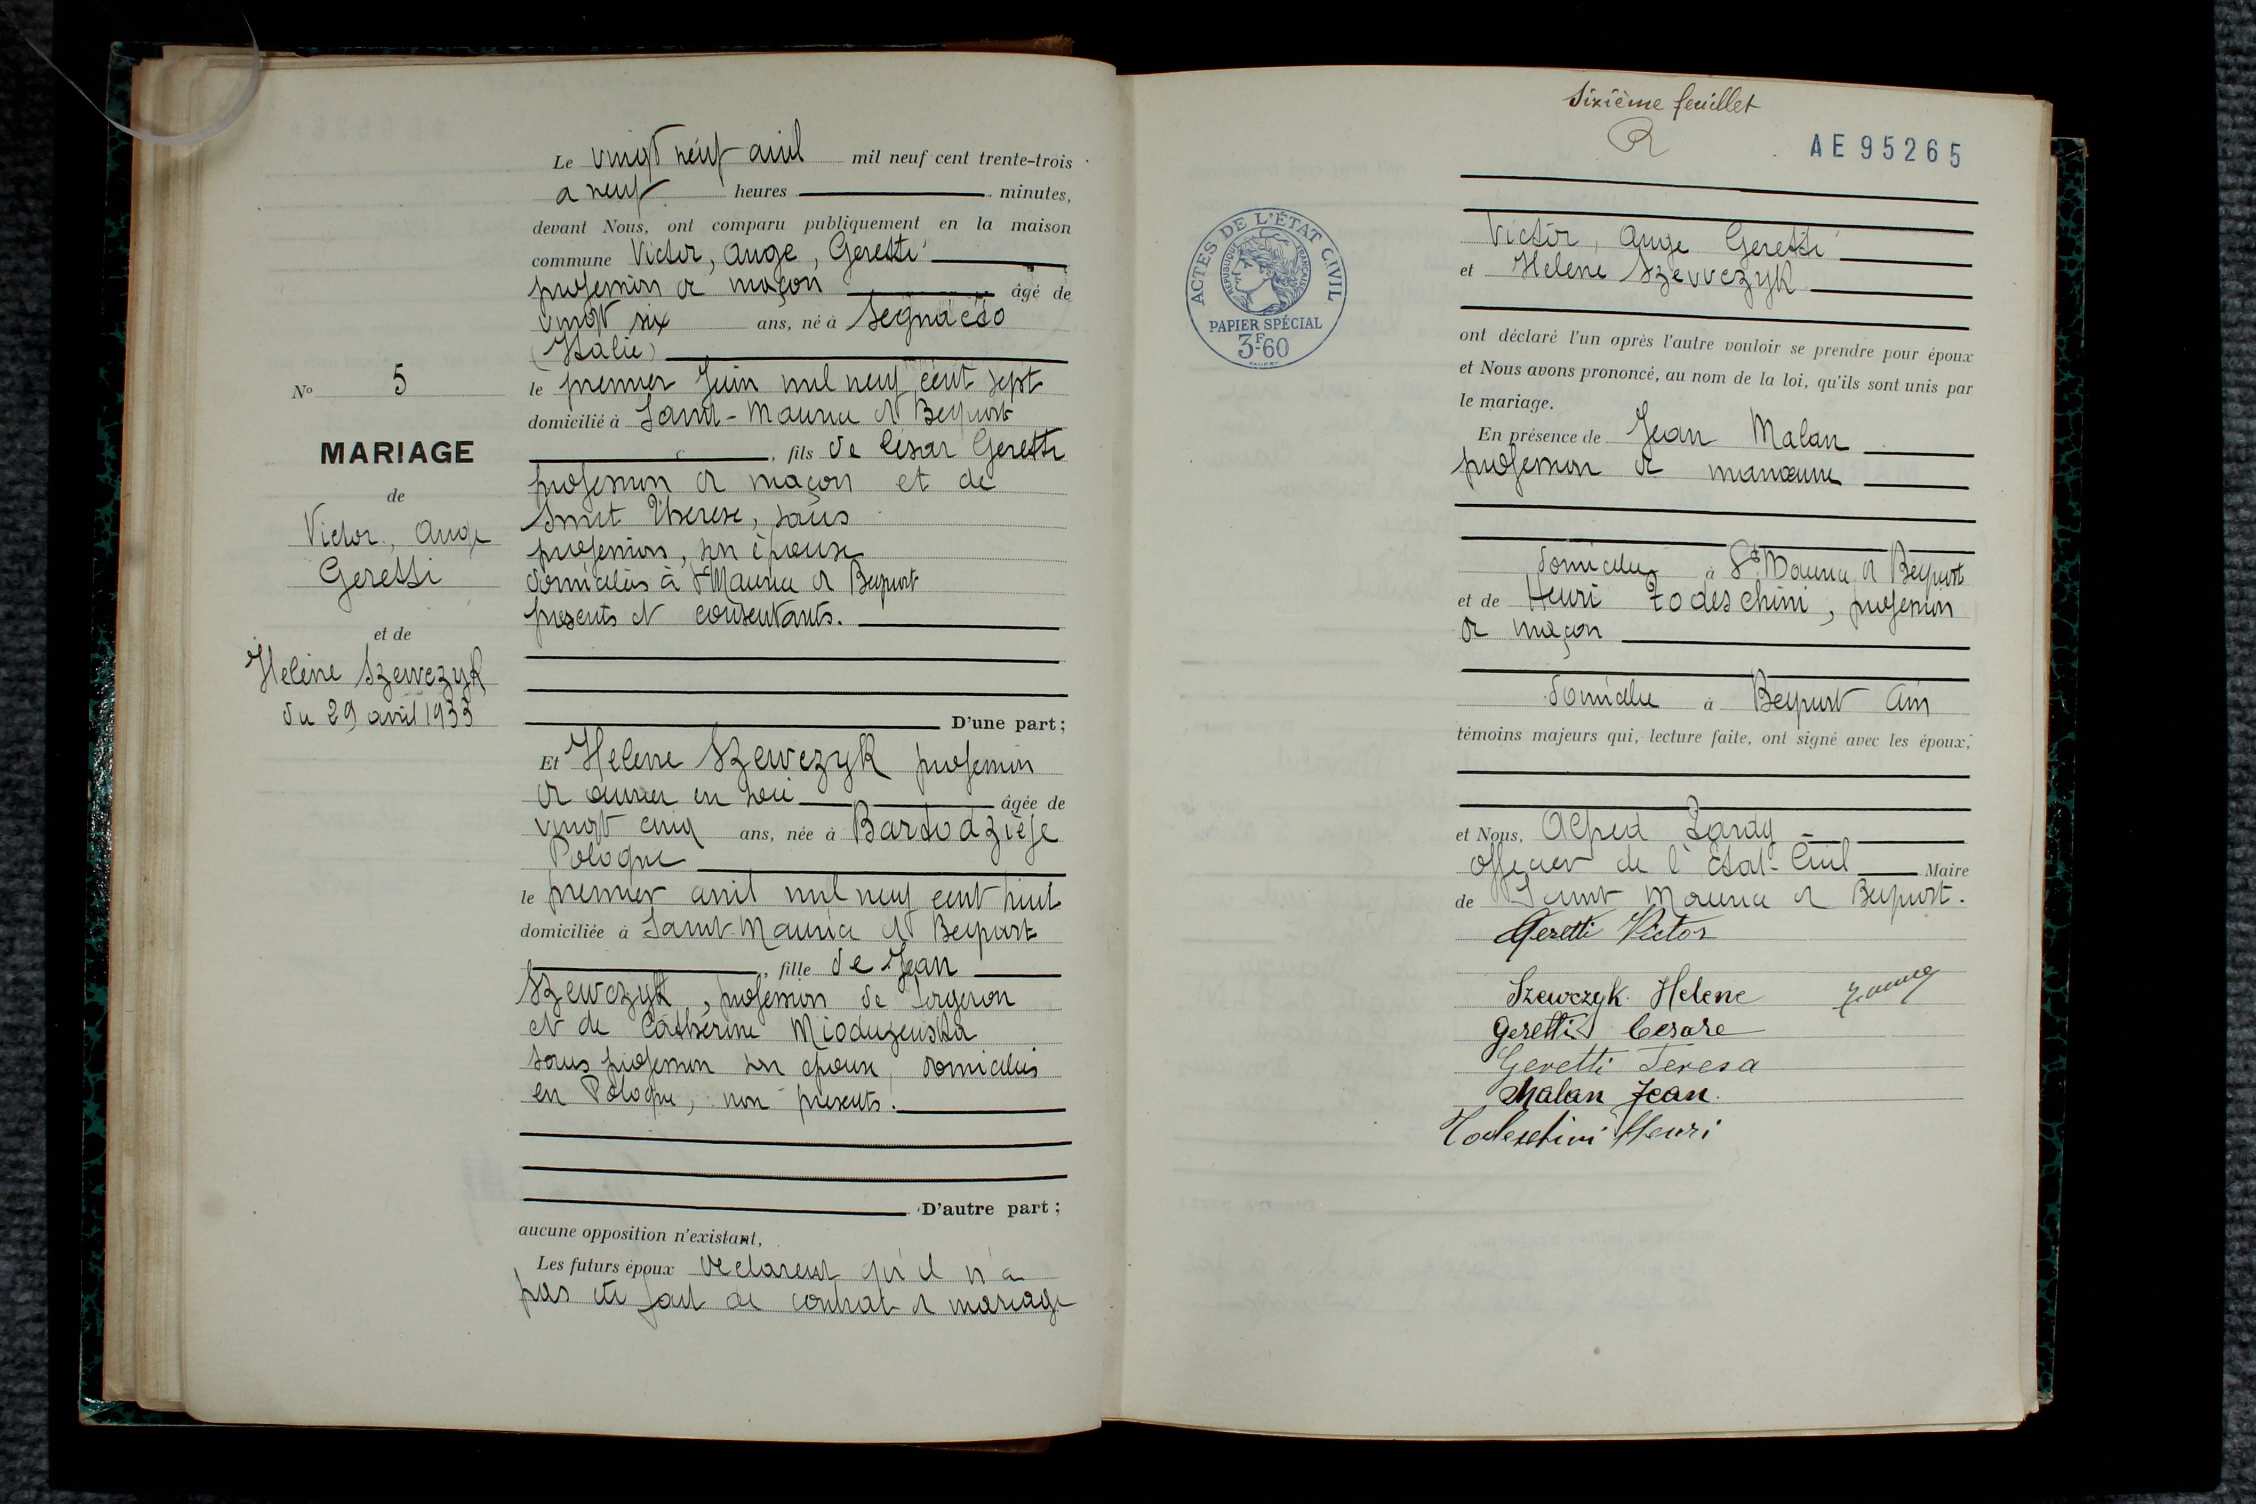 Le vingt neuf avril mil neuf cent trente-trois
a neuf heures minutes,
devant Nous, ont comparu publiquement en la maison
commune Victor, Ange, Geretti
profession de maçon âgé de
vingt six ans, né à Segnacco
(Italie)
le premier Juin mil neuf cent sept
domicilié à Saint-Maurice de Beynost
, fils de César Geretti
profession de maçon et de
Smit Thérese, sans
profession, son épouse
domiciliés à St Maurice de Beynost
présents et consentants.
D'une part;
Et Helene Szewczyk profession
de ouvrier en soie âgée de
vingt cinq ans, née à Bardodzièje
Pologne
le premier avril mil neuf cent huit
domiciliée à Saint-Maurice de Beynost
, fille de Jean
Szewczyk, profession de forgeron
et de Cathérine Mioduzenska
sans profession son épouse, domiciliés
en Pologne, non présents.
D'autre part;
aucune opposition n'existant,
Les futurs époux déclarent qu'il n'a
pas été fait de contrat de mariage
No 5
MARIAGE
de
Victor, Ange
Geretti
et de
Heléne Szewczyk
du 29 avril 1933
Sixième feuillet
AE 95265
ACTES DE L'ÉTAT CIVIL
RÉPUBLIQUE FRANÇAISE
PAPIER SPÉCIAL
3F60
Victor, Ange Geretti
et Helene Szewczyk
ont déclaré l'un après l'autre vouloir se prendre pour époux
et Nous avons prononcé, au nom de la loi, qu'ils sont unis par
le mariage.
En présence de Jean Malan
profession de manœuvre
domicilié à St Maurice de Beynost
et de Henri Todeschini, profession
de maçon
domicilié à Beynost Ain
témoins majeurs qui, lecture faite, ont signé avec les époux,
et Nous, Alfred
officier de l'Etat-Civil Maire
de Saint Maurice de Beynost.
Geretti Victor
Szewczyk Helene
Geretti Cesare
Geretti Teresa
Malan Jean
Todeschini Henri